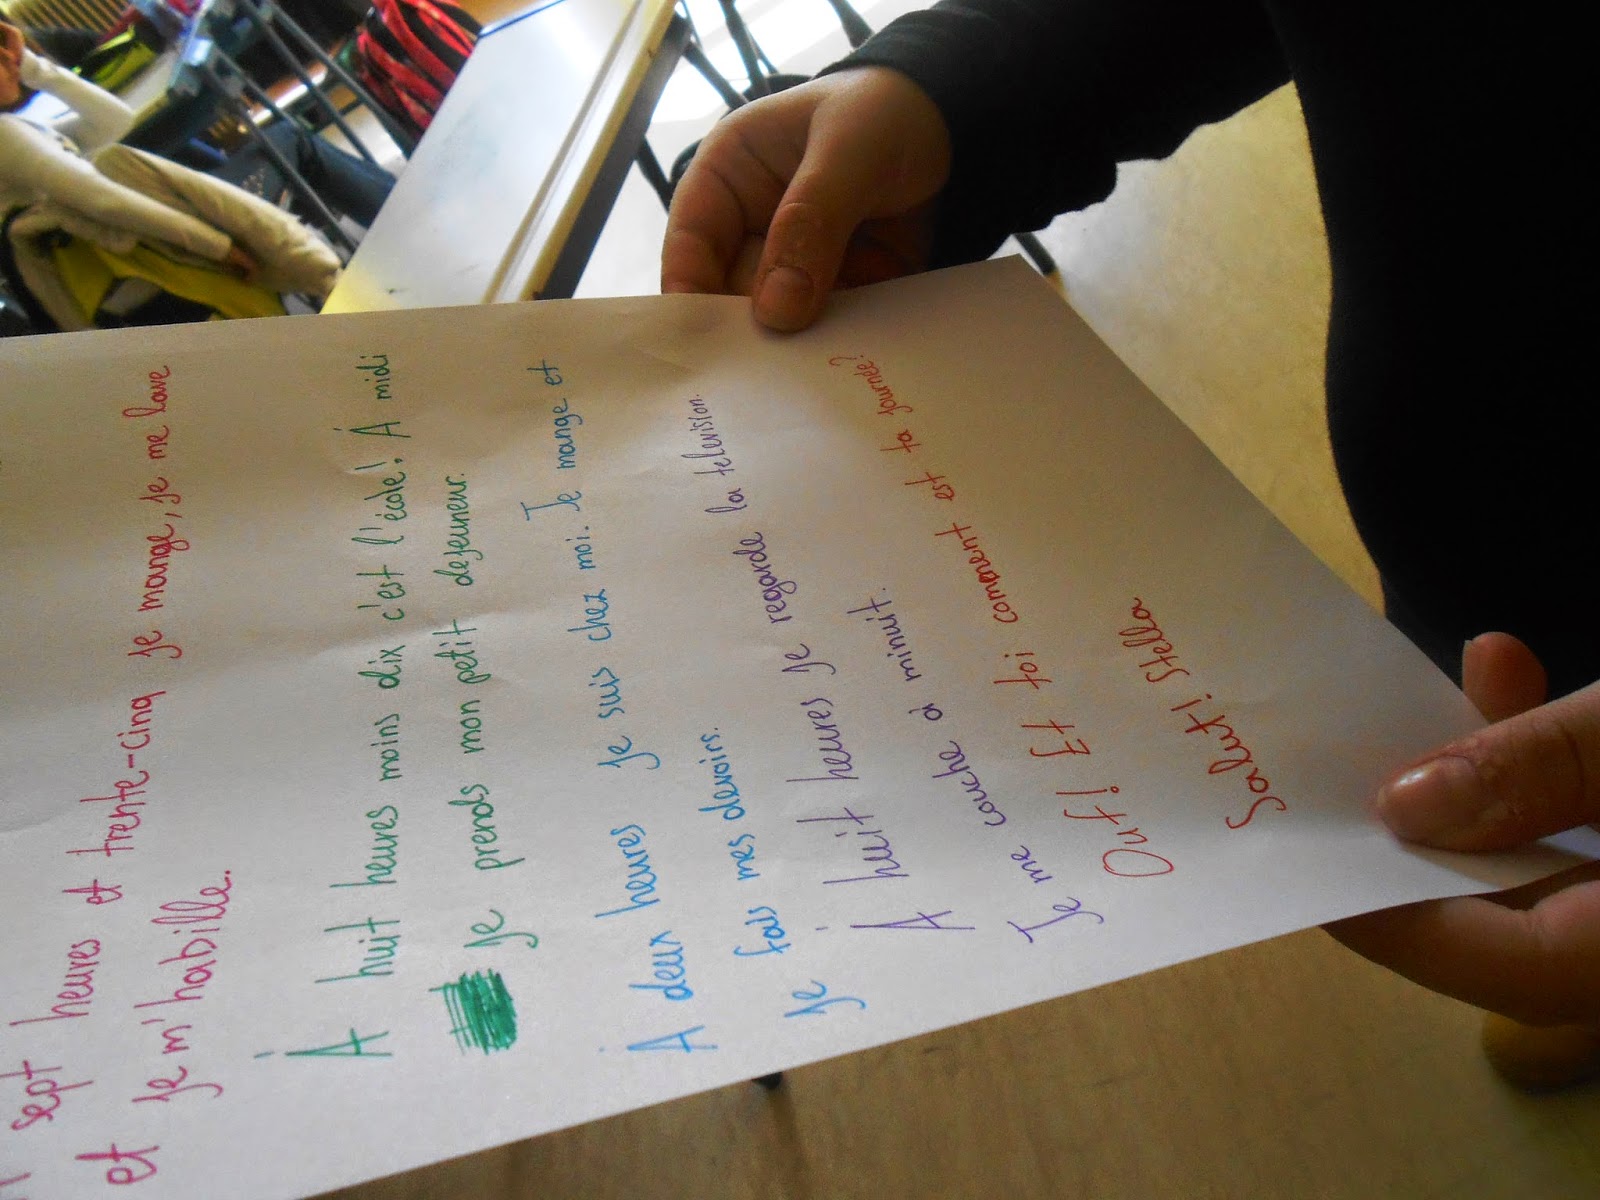 sept heures et trente-cinq je mange, je me lave
et je m'habille.
À huit heures moins dix c'est l'école! À midi
je prends mon petit dejeuner.
À deux heures je suis chez moi. Je mange et
je fais mes devoirs.
À huit heures je regarde la television.
Je me couche à minuit.
Ouf! Et toi comment est ta journée?
Salut! Stella